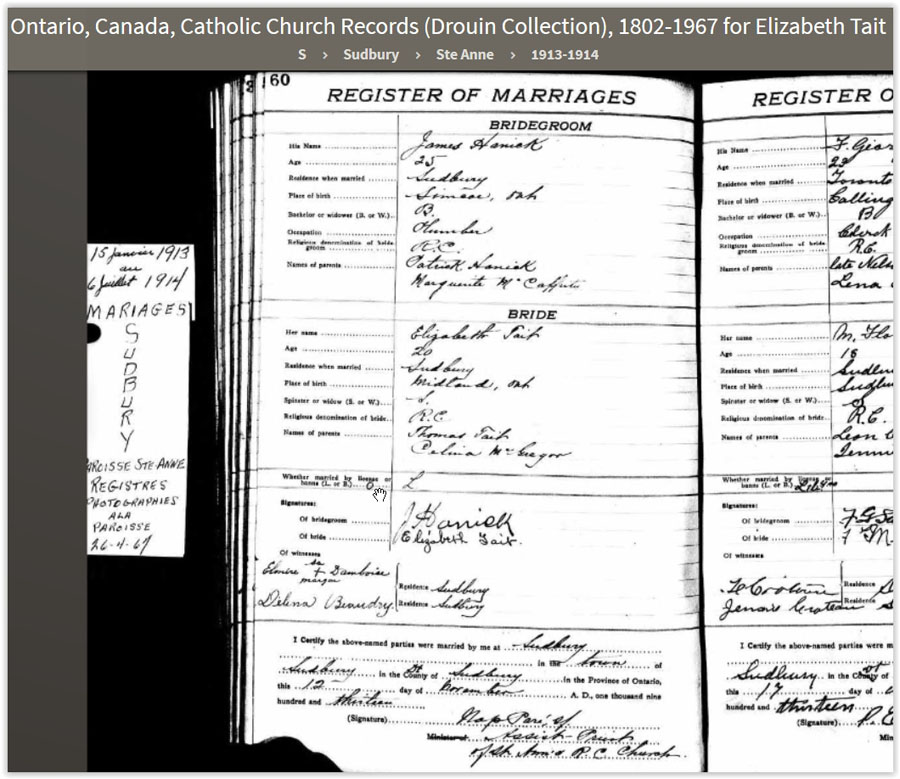 Ontario, Canada, Catholic Church Records (Drouin Collection), 1802-1967 for Elizabeth Tait
S › Sudbury › Ste Anne › 1913-1914
15 janvier 1913
au
6 juillet 1914
MARIAGES
S
U
D
B
U
R
Y
PAROISSE STE ANNE
REGISTRES
PHOTOGRAPHIES
A LA
PAROISSE
26-4-67
60
REGISTER OF MARRIAGES
BRIDEGROOM
His Name James Hanick
Age 25
Residence when married Sudbury
Place of birth Simcoe, Ont
Bachelor or widower (B. or W.) B.
Occupation Plumber
Religious denomination of bridegroom R.C.
Names of parents Patrick Hanick
Marguerite
BRIDE
Her name Elizabeth Tait
Age 20
Residence when married Sudbury
Place of birth Midland, Ont
Spinster or widow (S. or W.) S.
Religious denomination of bride R.C.
Names of parents Thomas Tait
Celina McGregor
Whether married by license or
banns (L. or B.) L
Signatures:
Of bridegroom J Hanick
Of bride Elizabeth Tait.
Of witnesses
Elmire sa + Damboise
marque
Residence Sudbury
Delina Beaudry. Residence Sudbury
I Certify the above-named parties were married by me at Sudbury
in the town of
Sudbury in the County of Sudbury in the Province of Ontario,
this 12 day of November A. D., one thousand nine
hundred and thirteen
(Signature) Nap
Minister of Assist Priest
of St Ann's R.C. Church
REGISTER O
His Name F. Geor
Age 23
Residence when married Toronto
Place of birth Colling
Bachelor or widower (B. or W.) B
Occupation Clerk
Religious denomination of bridegroom R.C.
Names of parents late Nels
Lena
Her name M. Flo
Age 18
Residence when married Sudbu
Place of birth Sudbu
Spinster or widow (S. or W.) S
Religious denomination of bride R.C.
Names of parents Leon
Jenni
Whether married by license or
banns (L. or B.)
Signatures:
Of bridegroom
Of bride
Of witnesses
Residence S
Residence S
I Certify the above-named parties were m
Sudbury in the County of
this 17 day of
hundred and thirteen
(Signature)
Min